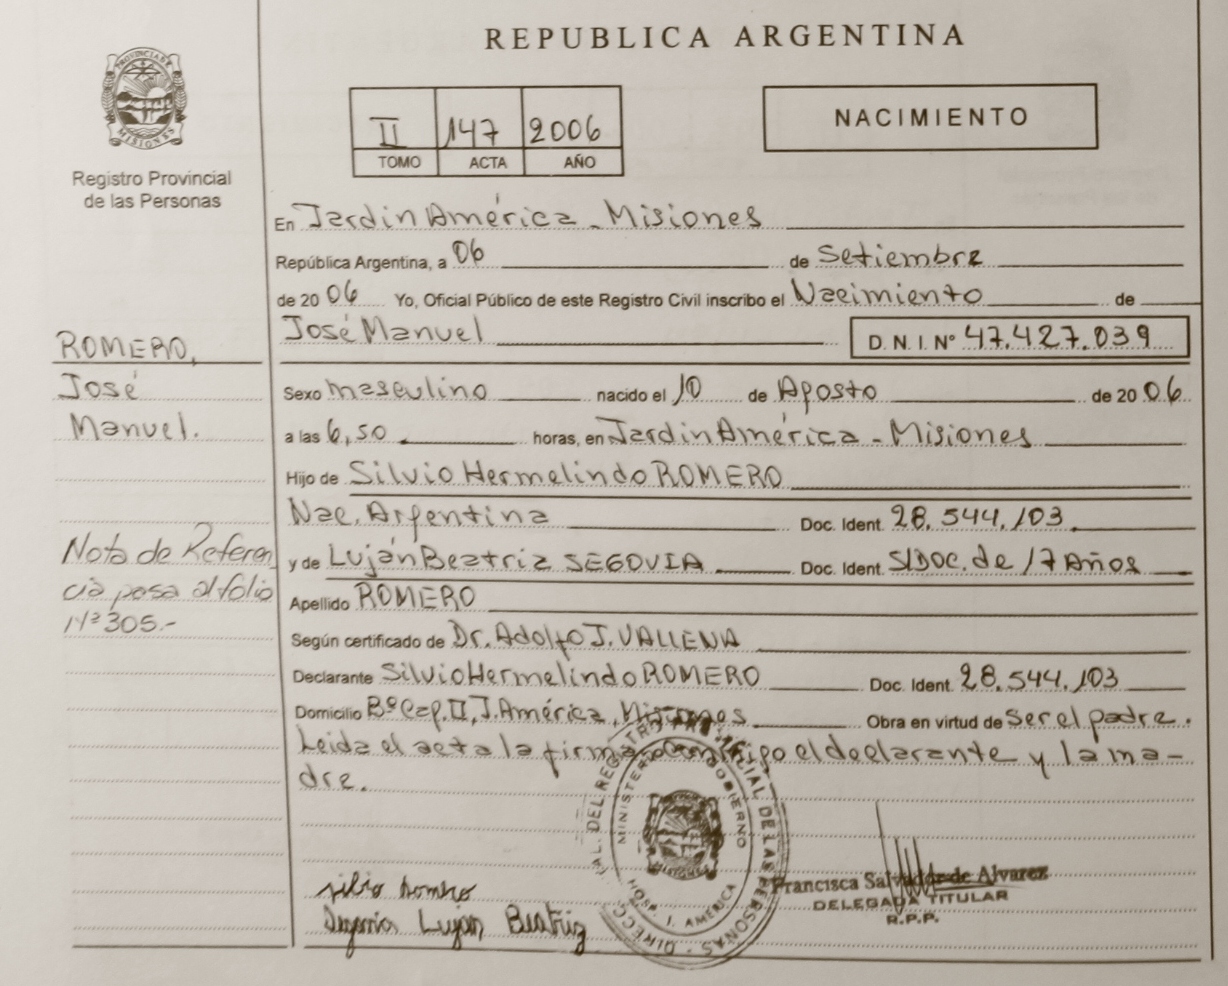 REPUBLICA ARGENTINA
PROVINCIA DE MISIONES
Registro Provincial
de las Personas
II 147 2006
TOMO ACTA AÑO
NACIMIENTO
En Jardin América - Misiones
República Argentina, a 06 de Setiembre
de 20 06 Yo, Oficial Público de este Registro Civil inscribo el Nacimiento de
José Manuel D. N. I. Nº 47.427.039
ROMERO,
José
Manuel.
Sexo masculino nacido el 10 de Agosto de 20 06
a las 6,50 horas, en Jardin América - Misiones
Hijo de Silvio Hermelindo ROMERO
Nac. Argentina Doc. Ident. 28.544.103
y de Luján Beatriz SEGOVIA Doc. Ident. S/DOC. de 17 Años
Apellido ROMERO
Nota de Referen
cia pasa al folio
Nº 305.-
Según certificado de Dr. Adolfo J. VALLENA
Declarante Silvio Hermelindo ROMERO Doc. Ident. 28.544.103
Domicilio Bº Cap. II, J. América, Misiones Obra en virtud de ser el padre.
Leida el acta la firma conmigo el declarante y la ma-
dre.
DEL REGISTRO PROVINCIAL DE LAS PERSONAS - DIRECC
MINISTERIO GOBIERNO
HOSP. J. AMERICA
silvio Romero
Lujan Beatriz
Francisca Salvador de Alvarez
DELEGADA TITULAR
R.P.P.